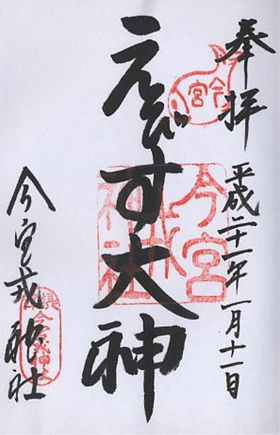 奉拝
平成二十一年一月十一日
今宮
ゑびす大神
今宮戎神社
今宮戎神社